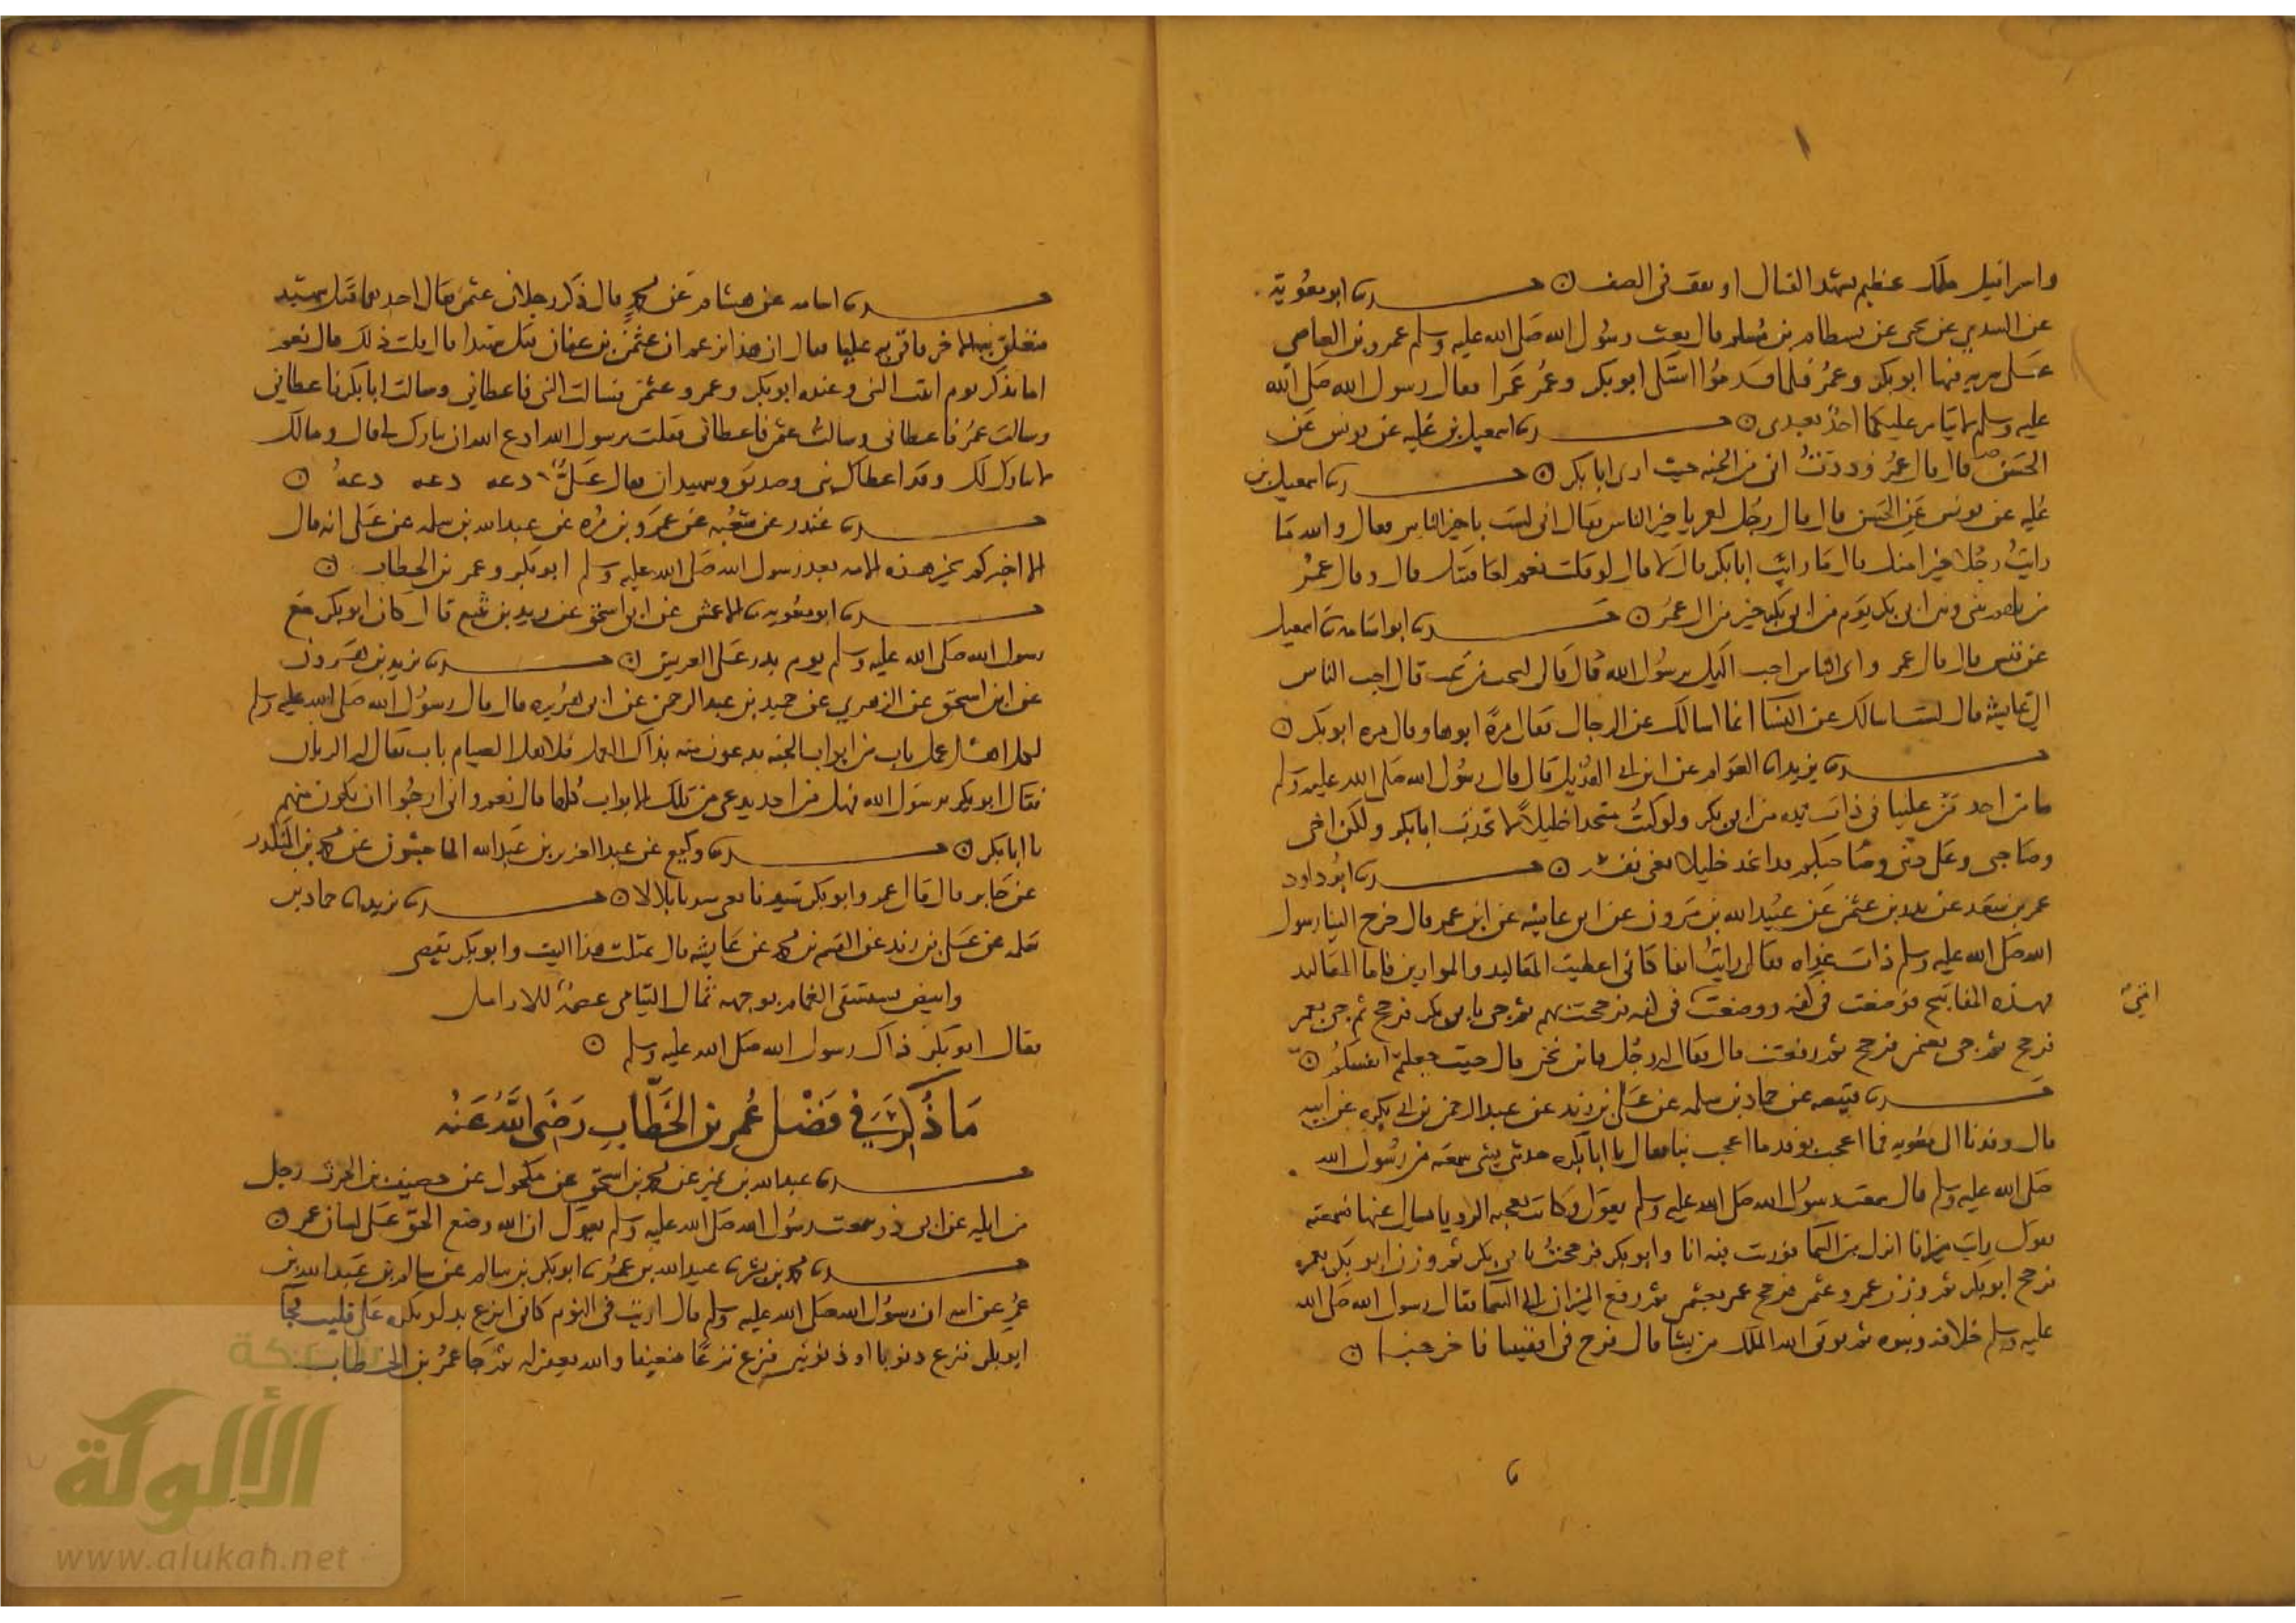 واسرافيل ملك عظيم يشهد القتال او يقف في الصف ○ حدثنا ابو معوية
عن السدي عن يحيى عن بسطام بن مسلم قال بعث رسول الله صلى الله عليه وسلم عمرو بن العاصي
على سرية فيها ابو بكر وعمر فلما قدموا اشتكى ابو بكر وعمر عمرا فقال رسول الله صلى الله
عليه وسلم لا يتامر عليكما احد بعدي ○ حدثنا اسمعيل بن علية عن يونس عن
الحسن قال قال عمر وددت اني من الجنة حيث ارى ابا بكر ○ حدثنا اسمعيل بن
علية عن يونس عن الحسن قال قال رجل لعمر يا خير الناس فقال اني لست بخير الناس فقال والله ما
رايت رجلا خيرا منك قال ما رايت ابا بكر قال لا قال لو قلت نعم لعاقبتك قال وقال عمر
من ابي بكر يوم من ابي بكر خير من ال عمر ○ حدثنا ابو اسامة نا اسمعيل
عن قيس قال قال عمرو اي الناس احب اليك يرسول الله قال قال لم قال لنحب من تحب قال احب الناس
الي عايشة قال لست اسالك عن النسا انما اسالك عن الرجال فقال مرة ابوها وقال مرة ابو بكر ○
حدثنا يزيد انا العوام عن ابن ابي الهذيل قال قال رسول الله صلى الله عليه وسلم
ما من احد من علينا في ذات يده من ابي بكر ولو كنت متخذا خليلا لاتخذت ابا بكر ولكن اخي
وصاحبي وعلى ديني وصاحبكم قد اتخذ خليلا يعني نفسه ○ حدثنا ابو داود
عمر بن سعد عن بدر بن عثمن عن عبيد الله بن مرون عن ابي عايشة عن ابن عمر قال خرج الينا رسول
الله صلى الله عليه وسلم ذات غداة فقال رايت انفا كاني اعطيت المقاليد والموازين فاما المقاليد
فهذه المفاتيح فوضعت في كفة ووضعت امتي في كفة فرجحت بهم ثم جي بابي بكر فرجح ثم جي بعمر
فرجح ثم جي بعثمن فرجح ثم رفعت قال فقال له رجل فاين نحن قال حيث جعلتم انفسكم ○
حدثنا قبيصة عن حماد بن سلمة عن علي بن زيد عن عبد الرحمن بن ابي بكرة عن ابيه
قال وفدنا الى معوية فما اعجب بوفد ما اعجب بنا فقال يا ابا بكرة حدثني بشي سمعته من رسول الله
صلى الله عليه وسلم قال سمعت رسول الله صلى الله عليه وسلم يقول وكانت تعجبه الرويا يسال عنها فسمعته
يقول رايت ميزانا انزل من السما فوزنت فيه انا وابو بكر فرجحت بابي بكر ثم وزن ابو بكر بعمر
فرجح ابو بكر ثم وزن عمر وعثمن فرجح عمر بعثمن ثم رفع الميزان الى السما فقال رسول الله صلى الله
عليه وسلم خلافة ونبوة ثم يوتي الله الملك من يشا قال فزخ في اقفيتنا فاخرجنا ○
حدثنا اسامة عن هشام عن محمد قال ذكر رجلان عثمن فقال احدهما قتل شهيد
فتعلق به الاخر فاتى به عليا فقال ان هذا يزعم ان عثمن بن عفان قتل شهيدا قال قلت ذلك قال نعم
اما تذكر يوم اتيت النبي وعنده ابو بكر وعمر وعثمن فسالت النبي فاعطاني وسالت ابا بكر فاعطاني
وسالت عمر فاعطاني وسالت عثمن فاعطاني فقلت يرسول الله ادع الله ان يبارك لي قال ومالك
لا يبارك لك وقد اعطاك نبي وصديق وشهيدان فقال علي دعه دعه دعه ○
حدثنا غندر عن شعبة عن عمرو بن مرة عن عبد الله بن سلمة عن علي انه قال
الا اخبركم بخير هذه الامة بعد رسول الله صلى الله عليه وسلم ابو بكر وعمر بن الخطاب ○
حدثنا ابو معوية نا الاعمش عن ابي اسحق عن زيد بن يثيع قال كان ابو بكر مع
رسول الله صلى الله عليه وسلم يوم بدر على العريش ○ حدثنا يزيد بن هرون
عن ابن اسحق عن الزهري عن حميد بن عبد الرحمن عن ابي هريرة قال قال رسول الله صلى الله عليه وسلم
لكل اهل عمل باب من ابواب الجنة يدعون منه بذاك العمل فلاهل الصيام باب يقال له الريان
فقال ابو بكر يرسول الله فهل من احد يدعى من تلك الابواب كلها قال نعم واني ارجوا ان تكون منهم
يا ابا بكر ○ حدثنا وكيع عن عبد العزيز بن عبد الله الماجشون عن محمد بن المنكدر
عن جابر قال قال عمر وابو بكر سيدنا اعتق سيدنا بلالا ○ حدثنا يزيد انا حماد بن
سلمة عن علي بن زيد عن القسم بن محمد عن عايشة قال تمثلت هذا البيت وابو بكر يقضي
وابيض يستسقى الغمام بوجهه ثمال اليتامى عصمة للارامل
فقال ابو بكر ذاك رسول الله صلى الله عليه وسلم ○
مَا ذُكِرَ في فَضْل عُمر بن الخَطّاب رَضي اللهُ عَنْهُ
حدثنا عبد الله بن نمير عن محمد بن اسحق عن مكحول عن غضيف بن الحرث رجل
من ايلة عن ابي ذر سمعت رسول الله صلى الله عليه وسلم يقول ان الله وضع الحق على لسان عمر ○
حدثنا محمد بن بشر نا عبيد الله بن عمر نا ابو بكر بن سالم عن سالم بن عبد الله بن
عمر عن ابيه ان رسول الله صلى الله عليه وسلم قال اريت في النوم كاني انزع بدلو بكرة على قليب فجا
ابو بكر فنزع ذنوبا او ذنوبين فنزع نزعا ضعيفا والله يغفر له ثم جا عمر بن الخطاب
شبكة
الألوكة
www.alukah.net